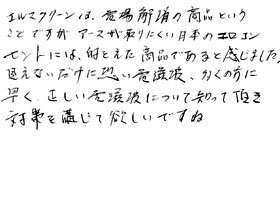 エルマクリーンは、電場解消の商品という
ことですが アースが取りにくい日本のコロコン
セントには、的をえた商品であると感じました。
見えないだけに恐い電磁波、多くの方に
早く、正しい電磁波について知って頂き
対策を講じて欲しいですね